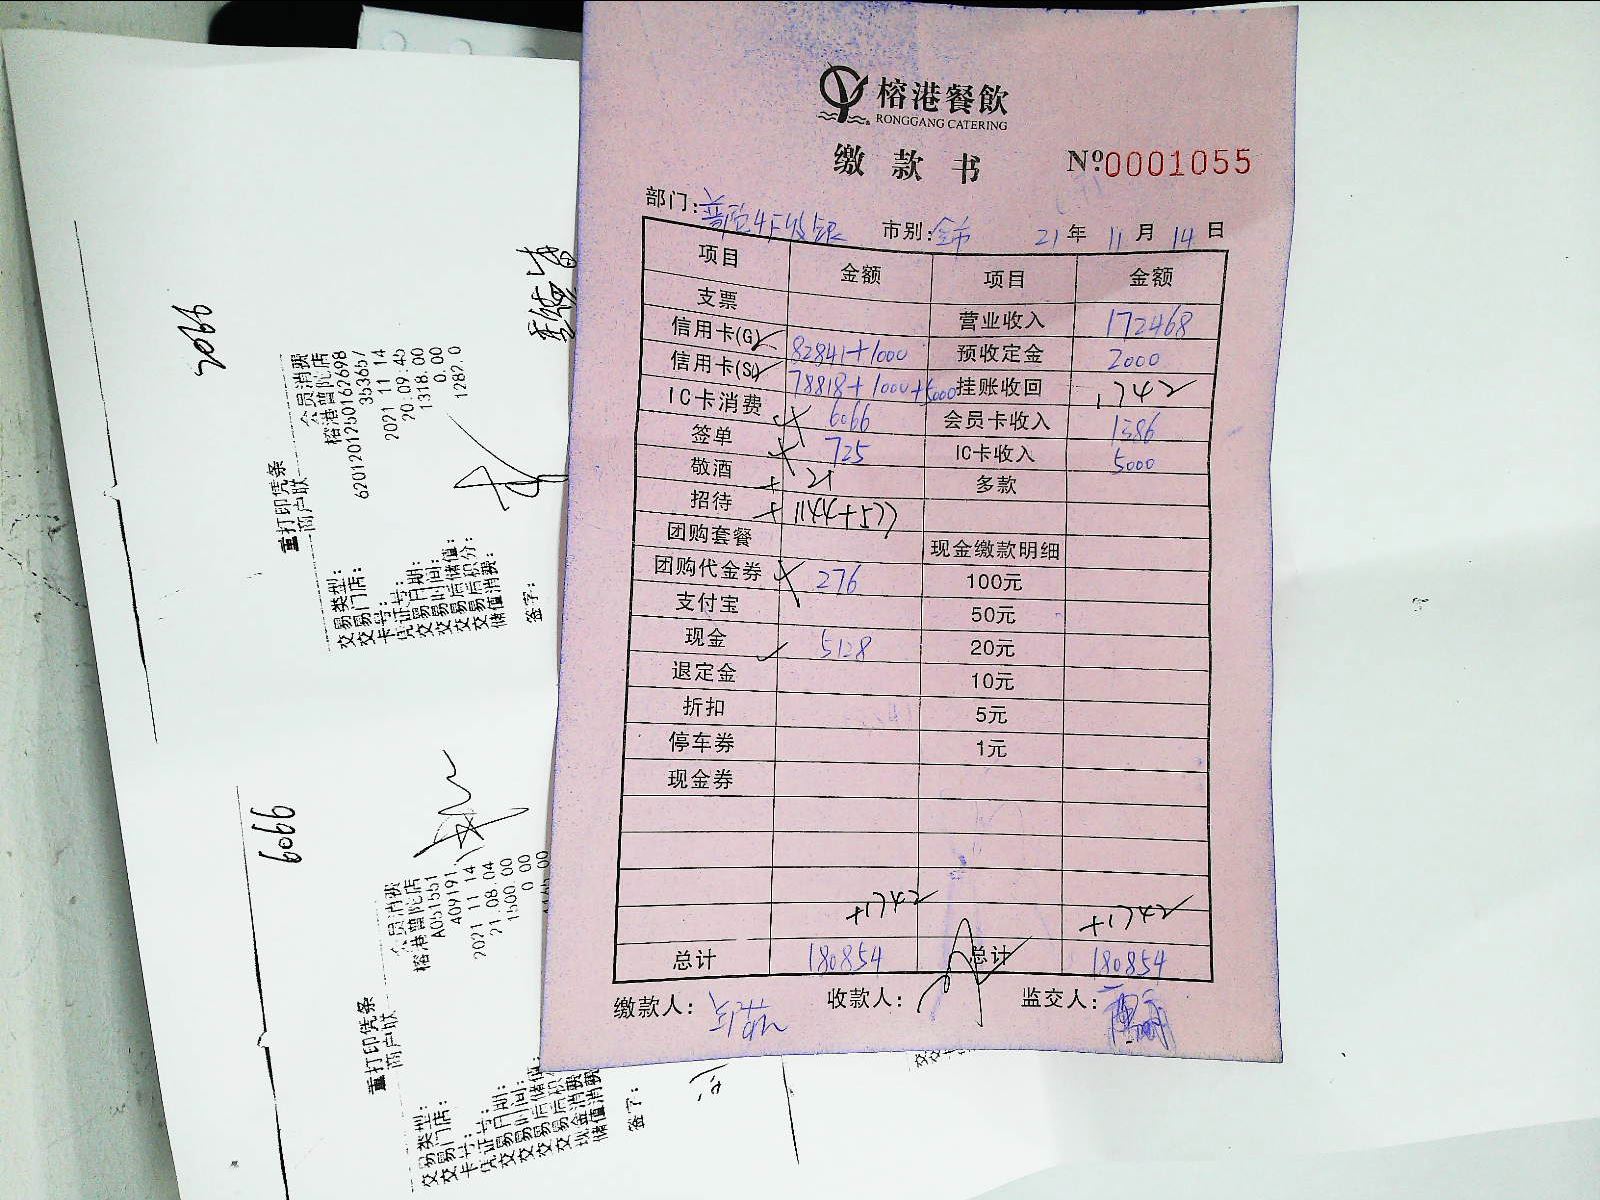 榕港餐飲
RONGGANG CATERING
缴款书 Nº0001055
部门: 市别: 21年 11月 14日
项目 金额 项目 金额
支票 营业收入 172468
信用卡(G) 82841+1000 预收定金 2000
信用卡(S) 78818+1000+5000 挂账收回 1742
IC卡消费 6066 会员卡收入 1386
签单 725 IC卡收入 5000
敬酒 21 多款
招待 1144+577
团购套餐 现金缴款明细
团购代金券 276 100元
支付宝 50元
现金 5128 20元
退定金 10元
折扣 5元
停车券 1元
现金券
+1742 +1742
总计 180854 总计 180854
缴款人: 收款人: 监交人:
重打印凭条
商户联
交易类型: 会员消费
交易门店: 榕港普陀店
卡号: 6201201250162698
凭证号: 353657
交易日期: 2021 11 14
交易时间: 20.09.45
交易后储值: 1318.00
交易后积分: 0.00
储值消费: 1282.0
签字:
6066
重打印凭条
商户联
交易类型: 会员消费
交易门店: 榕港普陀店
卡号: A051551
凭证号: 409191
交易日期: 2021 11 14
交易时间: 21.08.04
交易后储值: 1500.00
交易后积 0.00
现金消费
储值消费
签字: